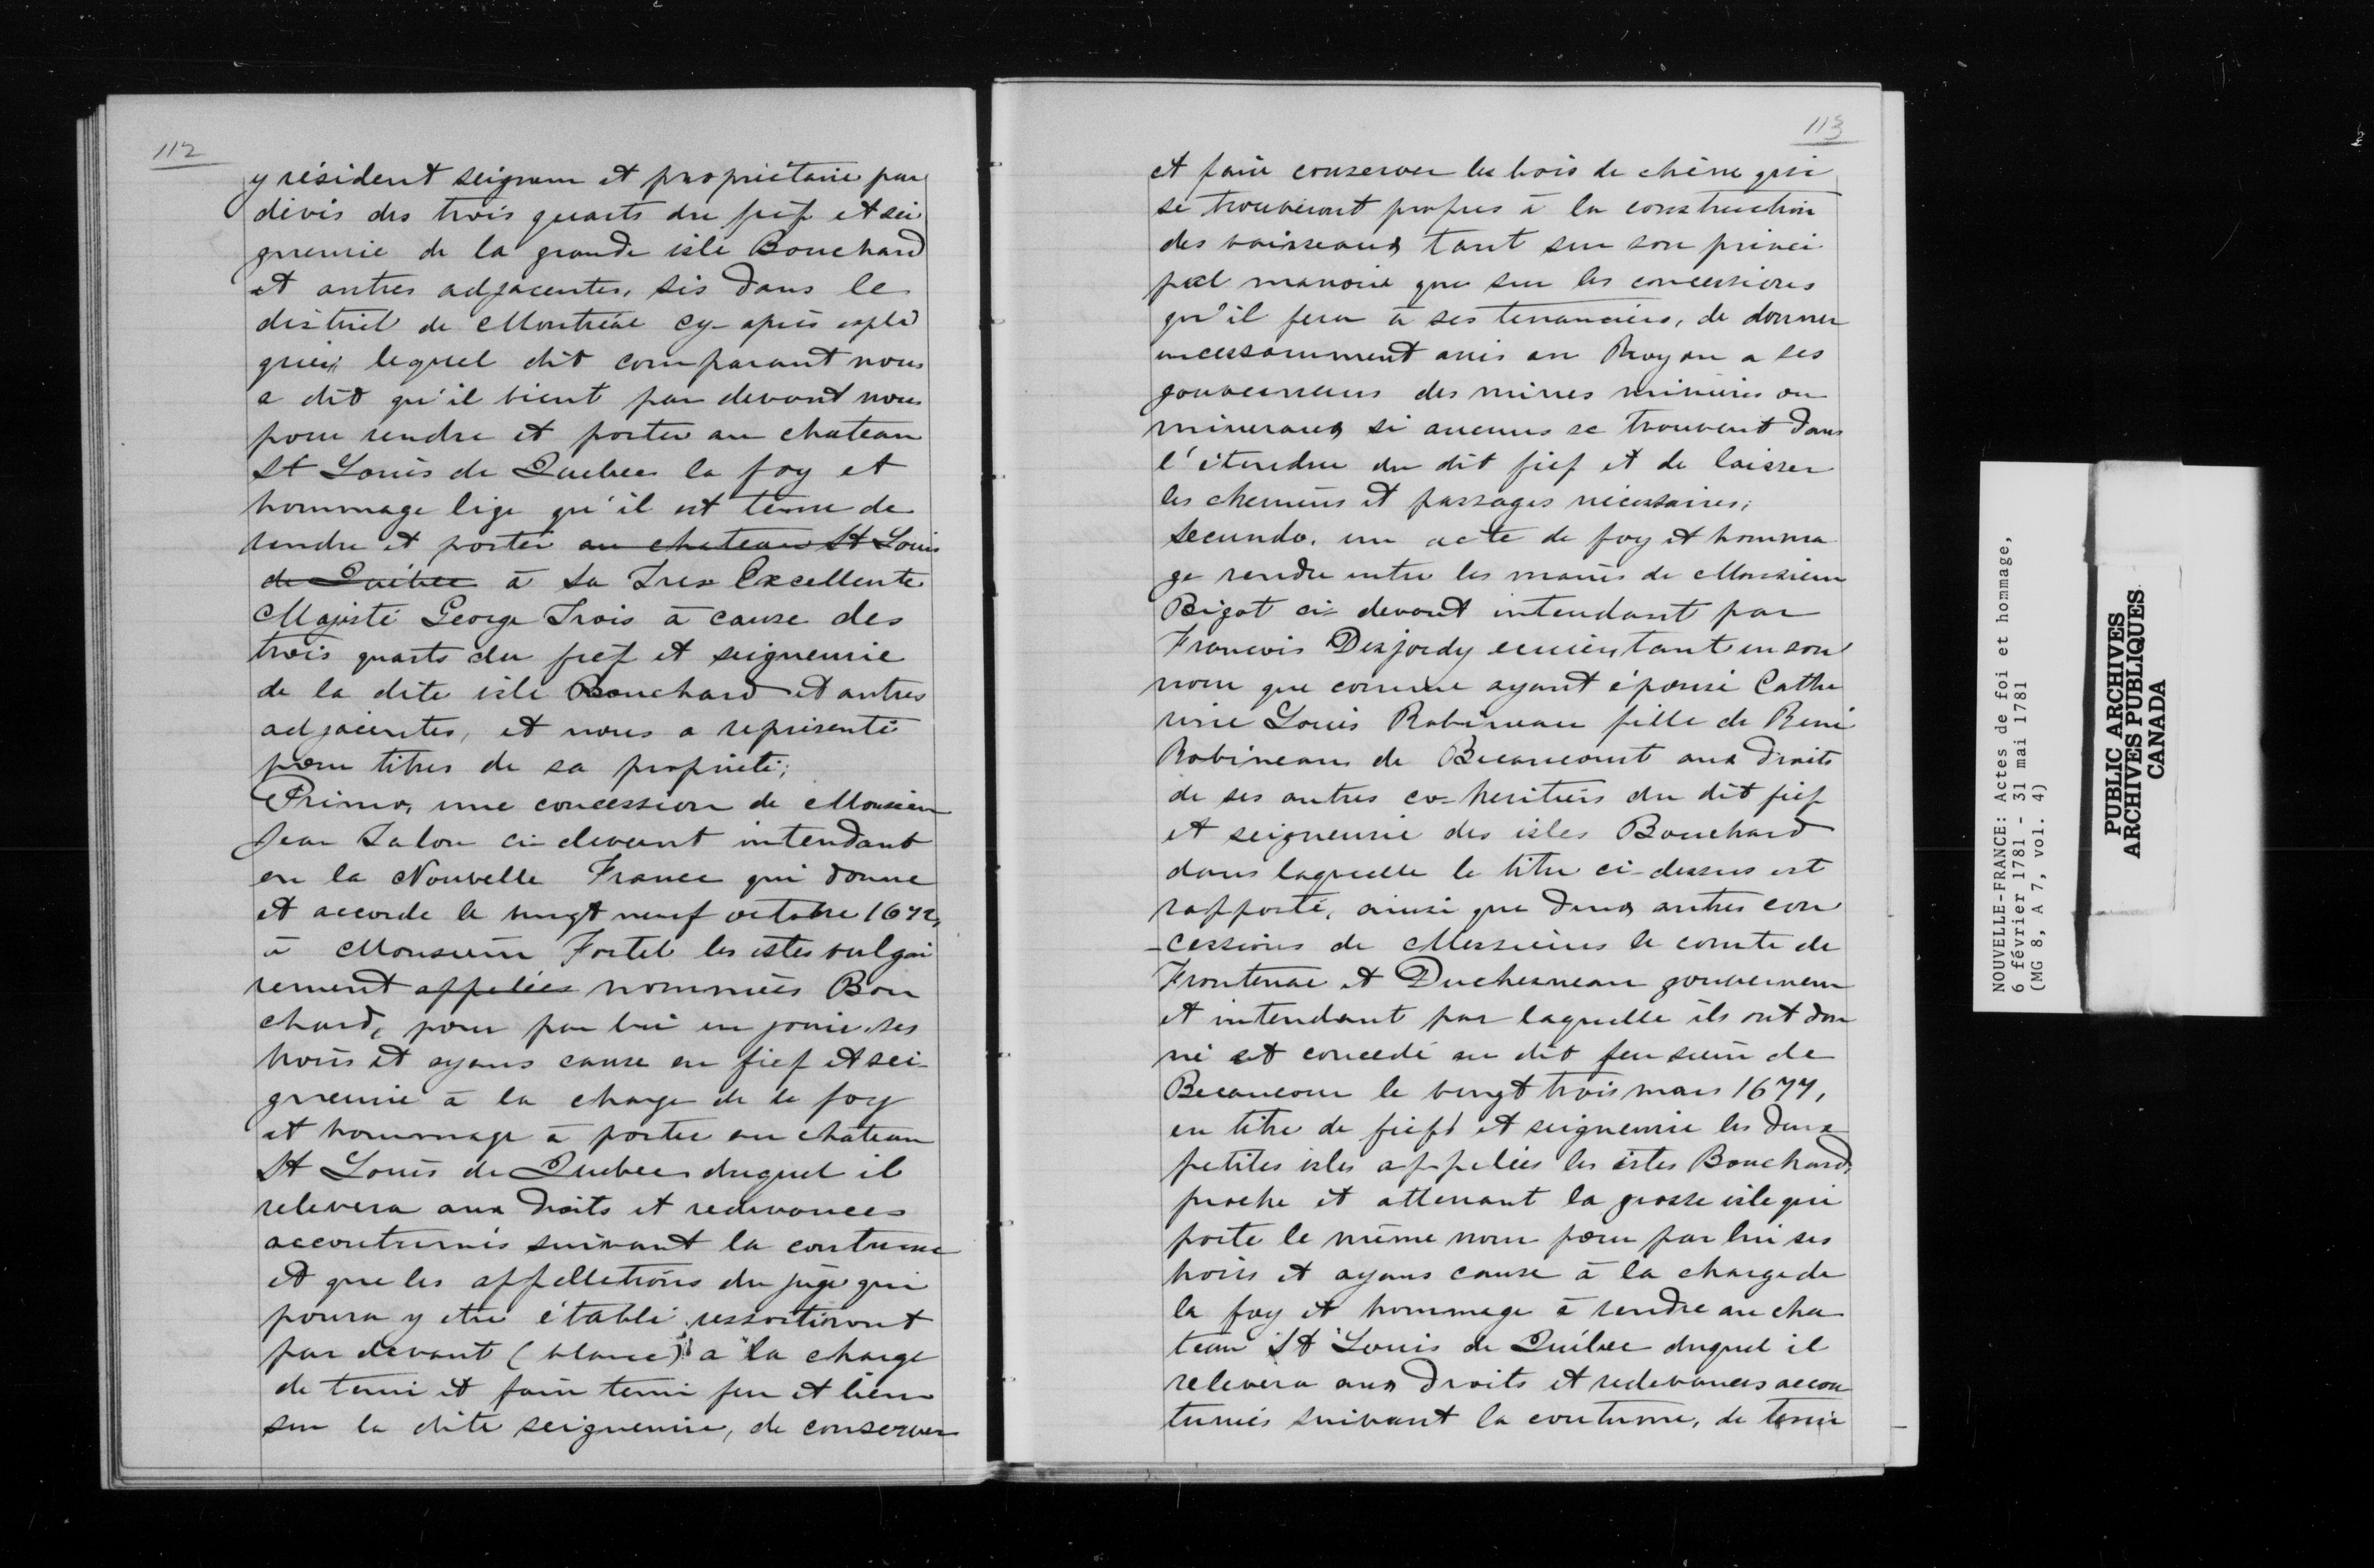 112
y résident seigneur et propriétaire par
divis des trois quarts du fief et sei
gneurie de la grande isle Bouchard
et autres adjacentes, sis dans le
district de Montréal cy-après expli
quées lequel dit comparant nous
a dit qu'il vient par devant nous
pour rendre et porter au chateau
St Louis de Quebec la foy et
hommage lige qu'il est tenu de
rendre et porter au chateau St Louis
de Québec à Sa Tres Excellente
Majesté George Trois à cause des
trois quarts du fief et seigneurie
de la dite isle Bouchard et autres
adjacentes, et nous a representé
pour titres de sa proprieté;
Primo, une concession de Monsieur
Jean Talon ci-devant intendant
en la Nouvelle France qui donne
et accorde le vingt neuf octobre 1672,
à Monsieur Fortel les isles vulgai
rement appelées nommées Bou
chard, pour par lui en jouir, ses
hoirs et ayans cause en fief et sei-
gneurie à la charge de la foy
et hommage à porter au chateau
St Louis de Quebec duquel il
relevera aux droits et redevances
accoutumés suivant la coutume
et que les appellations du juge qui
poura y etre établi ressortiront
par devant (blanc) à la charge
de tenir et faire tenir feu et lieu
sur la dite seigneurie, de conserver
113
et faire conserver les bois de chêne qui
se trouveront propres à la construction
des vaisseaux tant sur son princi
pal manoir que sur les concessions
qu'il fera à ses tenanciers, de donner
incessamment avis au Roy ou a ses
gouverneurs des mines minières ou
mineraux si aucuns se trouvent dans
l'étendue du dit fief et de laisser
les chemins et passages nécessaires;
Secundo, un acte de foy et homma
ge rendu entre les mains de Monsieur
Bigot ci-devant intendant par
Francois Desjordy ecuier, tant en son
nom que comme ayant épousé Cathe
rine Louis Robineau fille de René
Robineau de Becancourt aux droits
de ses autres co-heritiers du dit fief
et seigneurie des isles Bouchard
dans laquelle le titre ci-dessus est
rapporté, ainsi que deux autres con
-cessions de Messieurs le comte de
Frontenac et Duchesneau gouverneur
et intendant par laquelle ils ont don
né et concedé au dit feu sieur de
Becancour le vingt trois mars 1677,
en titre de fief et seigneurie les deux
petites isles appelées les isles Bouchard,
proche et attenant la grosse isle qui
porte le même nom pour par lui ses
hoirs et ayans cause à la charge de
la foy et hommage à rendre au cha
teau St Louis de Québec duquel il
relevera aux droits et redevances accou
tumés suivant la coutume, de tenir
NOUVELLE-FRANCE: Actes de foi et hommage,
6 février 1781 - 31 mai 1781
(MG 8, A 7, vol. 4)
PUBLIC ARCHIVES
ARCHIVES PUBLIQUES
CANADA